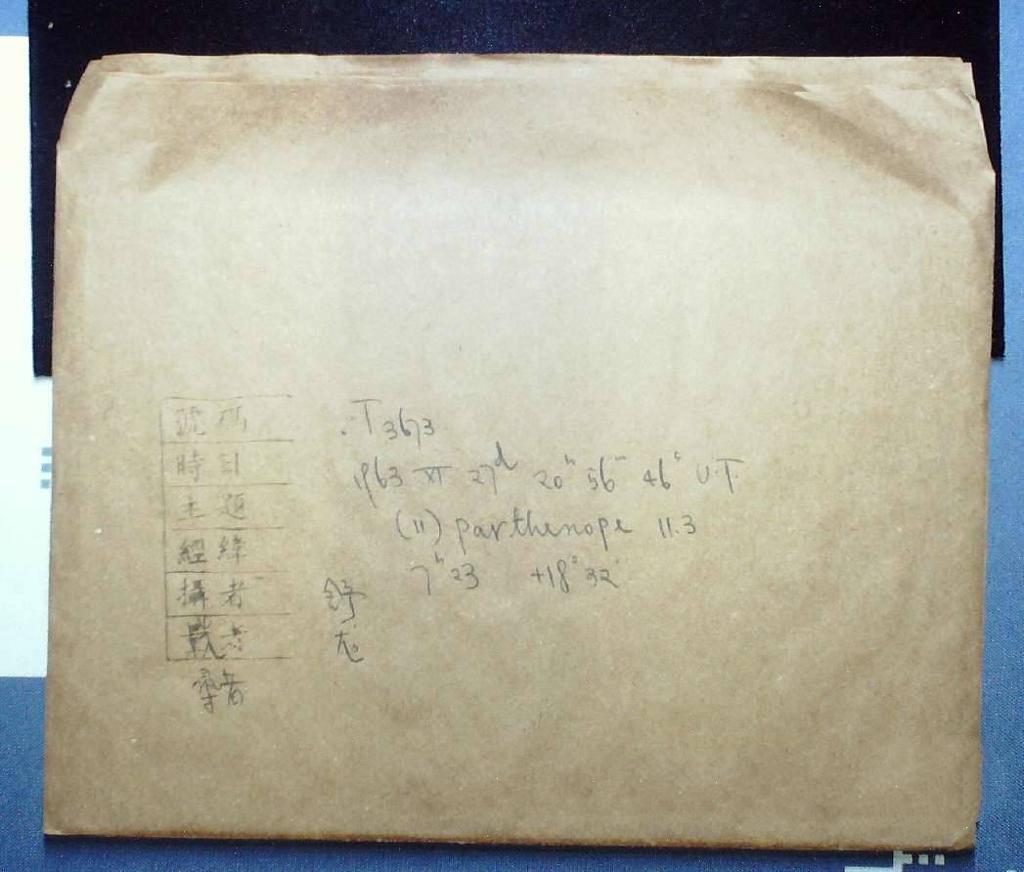 號碼 T3673
時日 1963 XI 27d 20h 56m 46s U.T.
主題 (11) parthenope 11.3
經緯 7h 23 +18° 32'
攝者 舒
者 龙
者